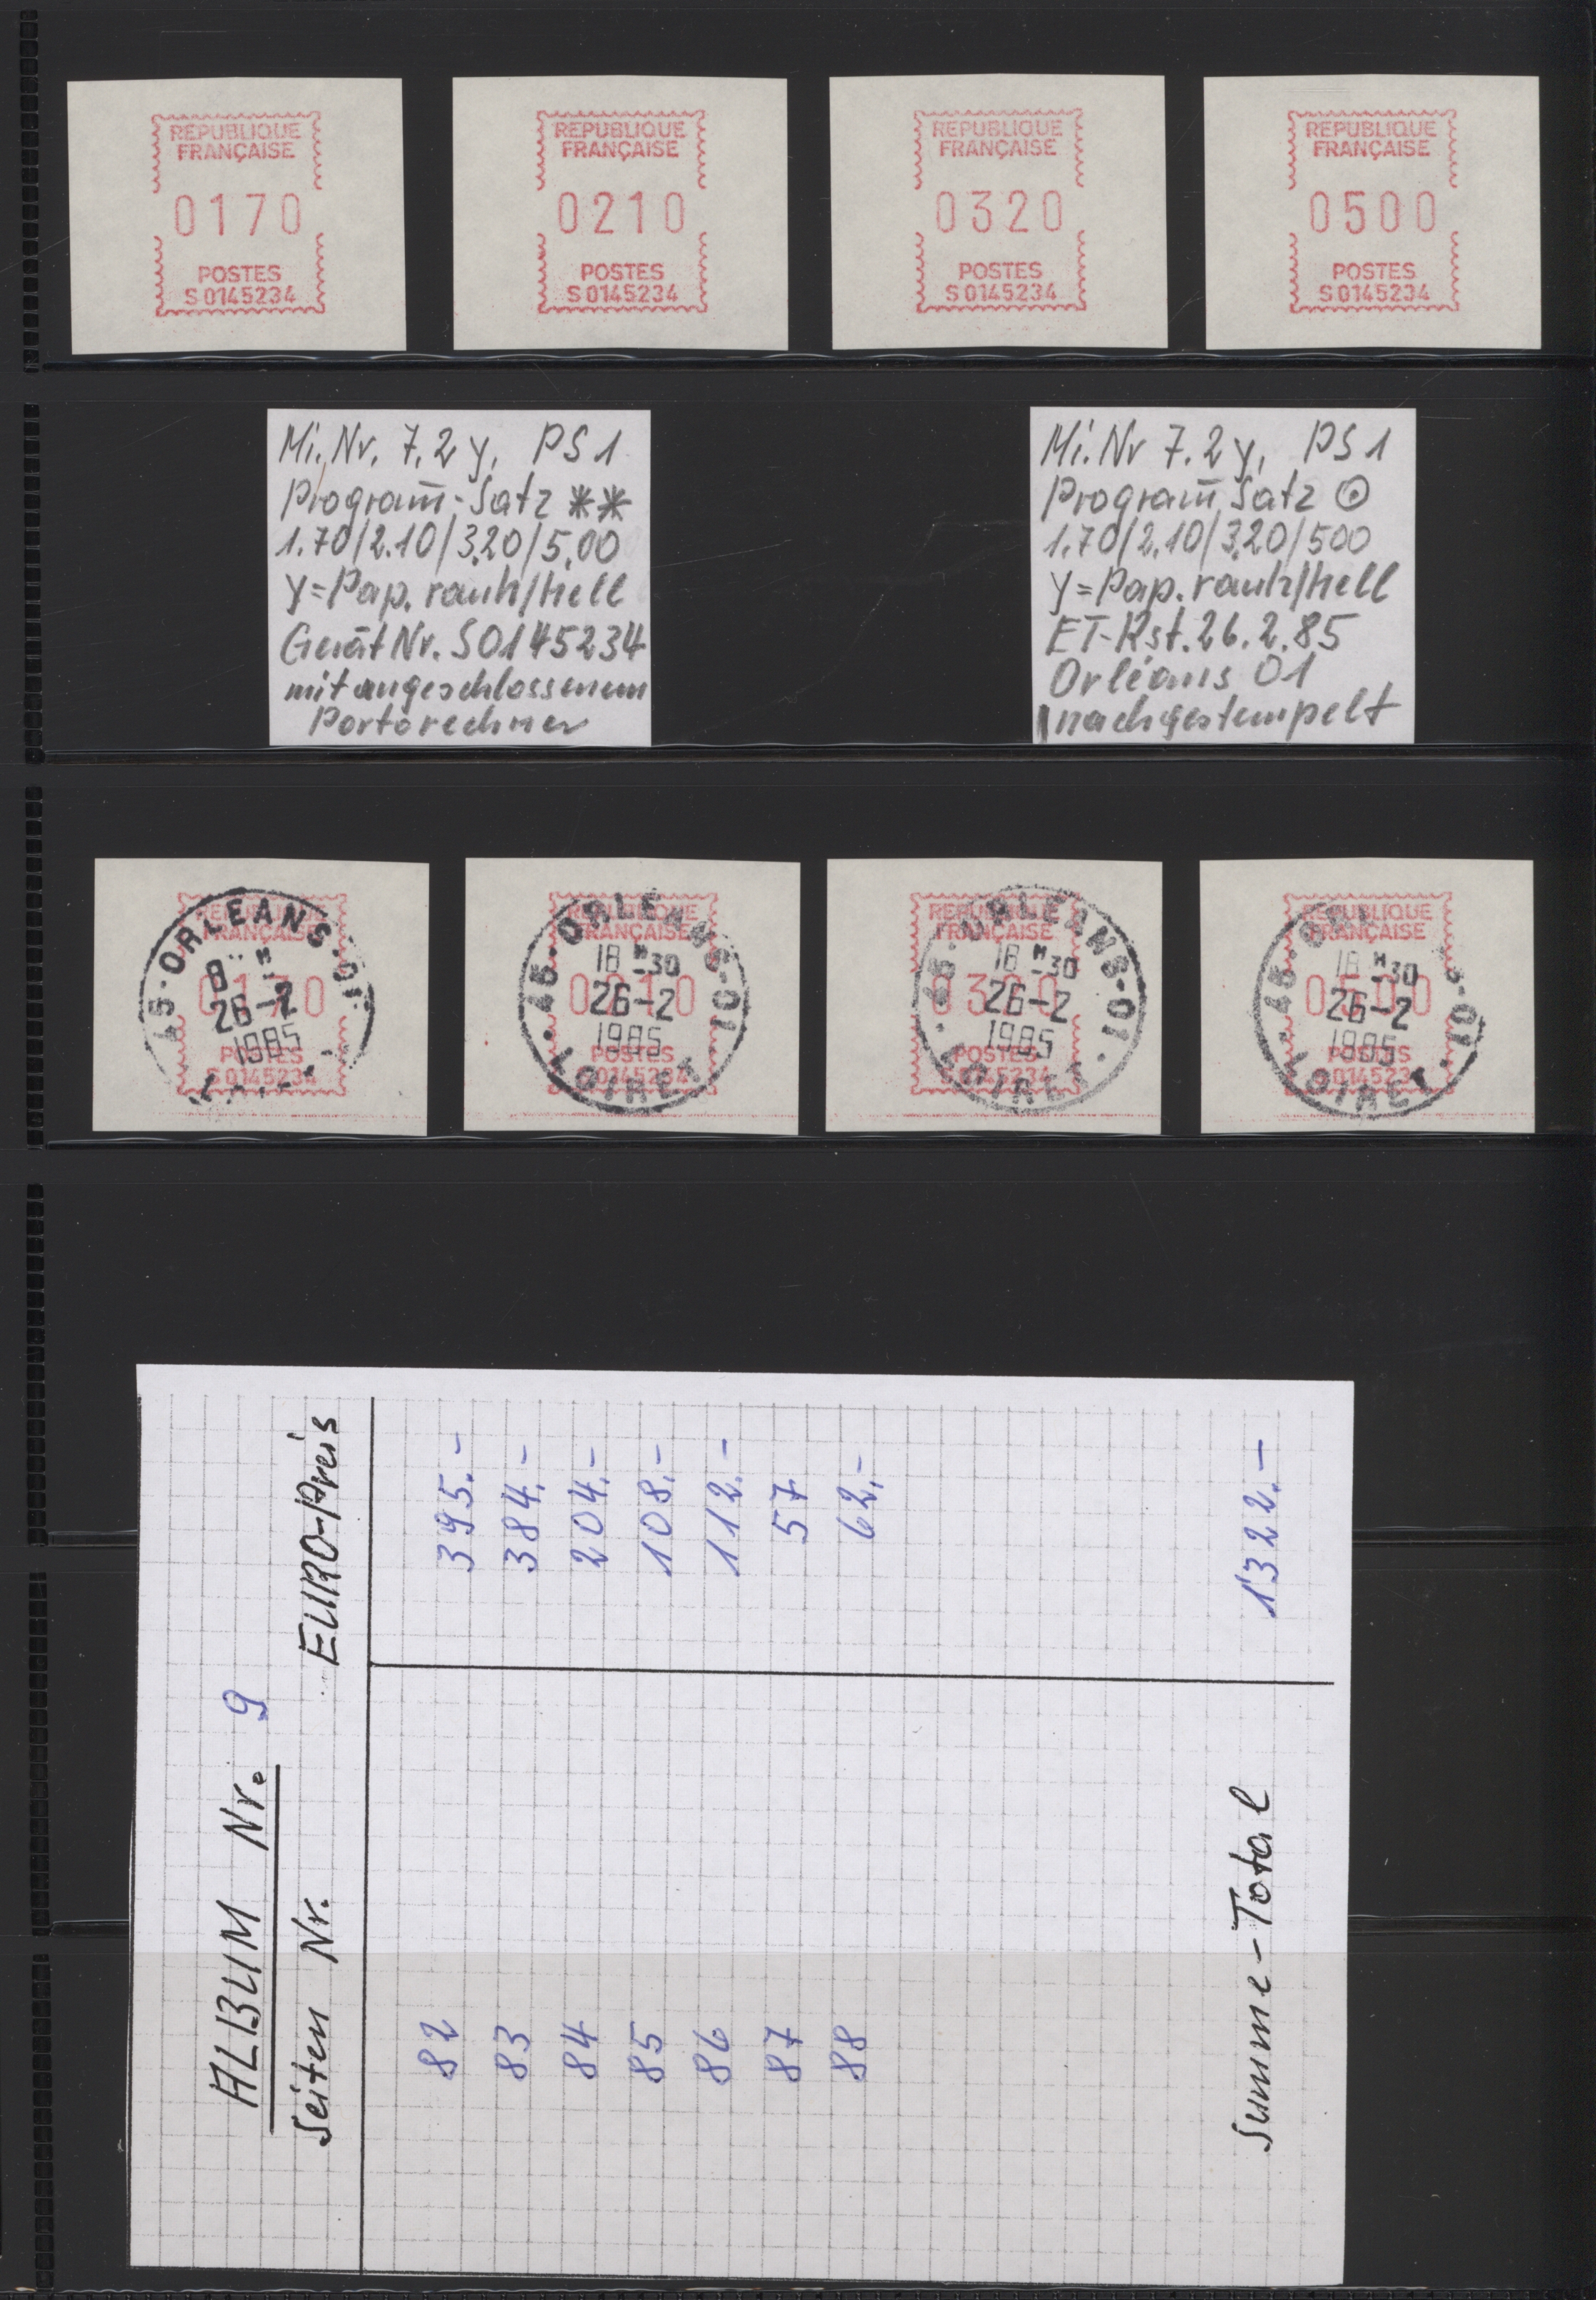 REPUBLIQUE
FRANÇAISE
0170
POSTES
S 0145234
REPUBLIQUE
FRANÇAISE
0210
POSTES
S 0145234
REPUBLIQUE
FRANÇAISE
0320
POSTES
S 0145234
REPUBLIQUE
FRANÇAISE
0500
POSTES
S 0145234
Mi.Nr. 7.2 y, PS 1
Program̄-Satz **
1.70/2.10/3.20/5.00
y=Pap. rauh/hell
Gerät Nr. S0145234
mit angeschlossenem
Portorechner
Mi.Nr 7.2 y, PS 1
Program̄ Satz ⊙
1.70/2.10/3.20/500
y=Pap. rauh/hell
ET-Rst. 26.2.85
Orléans 01
nachgestempelt
REPUBLIQUE
FRANÇAISE
0170
POSTES
S 0145234
45-ORLEANS-01
26-2
1985
REPUBLIQUE
FRANÇAISE
0210
POSTES
S 0145234
45-ORLEANS-01
18 H-30
26-2
1985
LOIRET
REPUBLIQUE
FRANÇAISE
0320
POSTES
S 0145234
45-ORLEANS-01
18 H-30
26-2
1985
LOIRET
REPUBLIQUE
FRANÇAISE
0500
POSTES
S 0145234
45-ORLEANS-01
18 H-30
26-2
1985
LOIRET
ALBUM Nr. 9
Seiten Nr. EURO-Preis
82 395.-
83 384.-
84 204.-
85 108.-
86 112.-
87 57
88 62.-
Summe-Total 1322.-